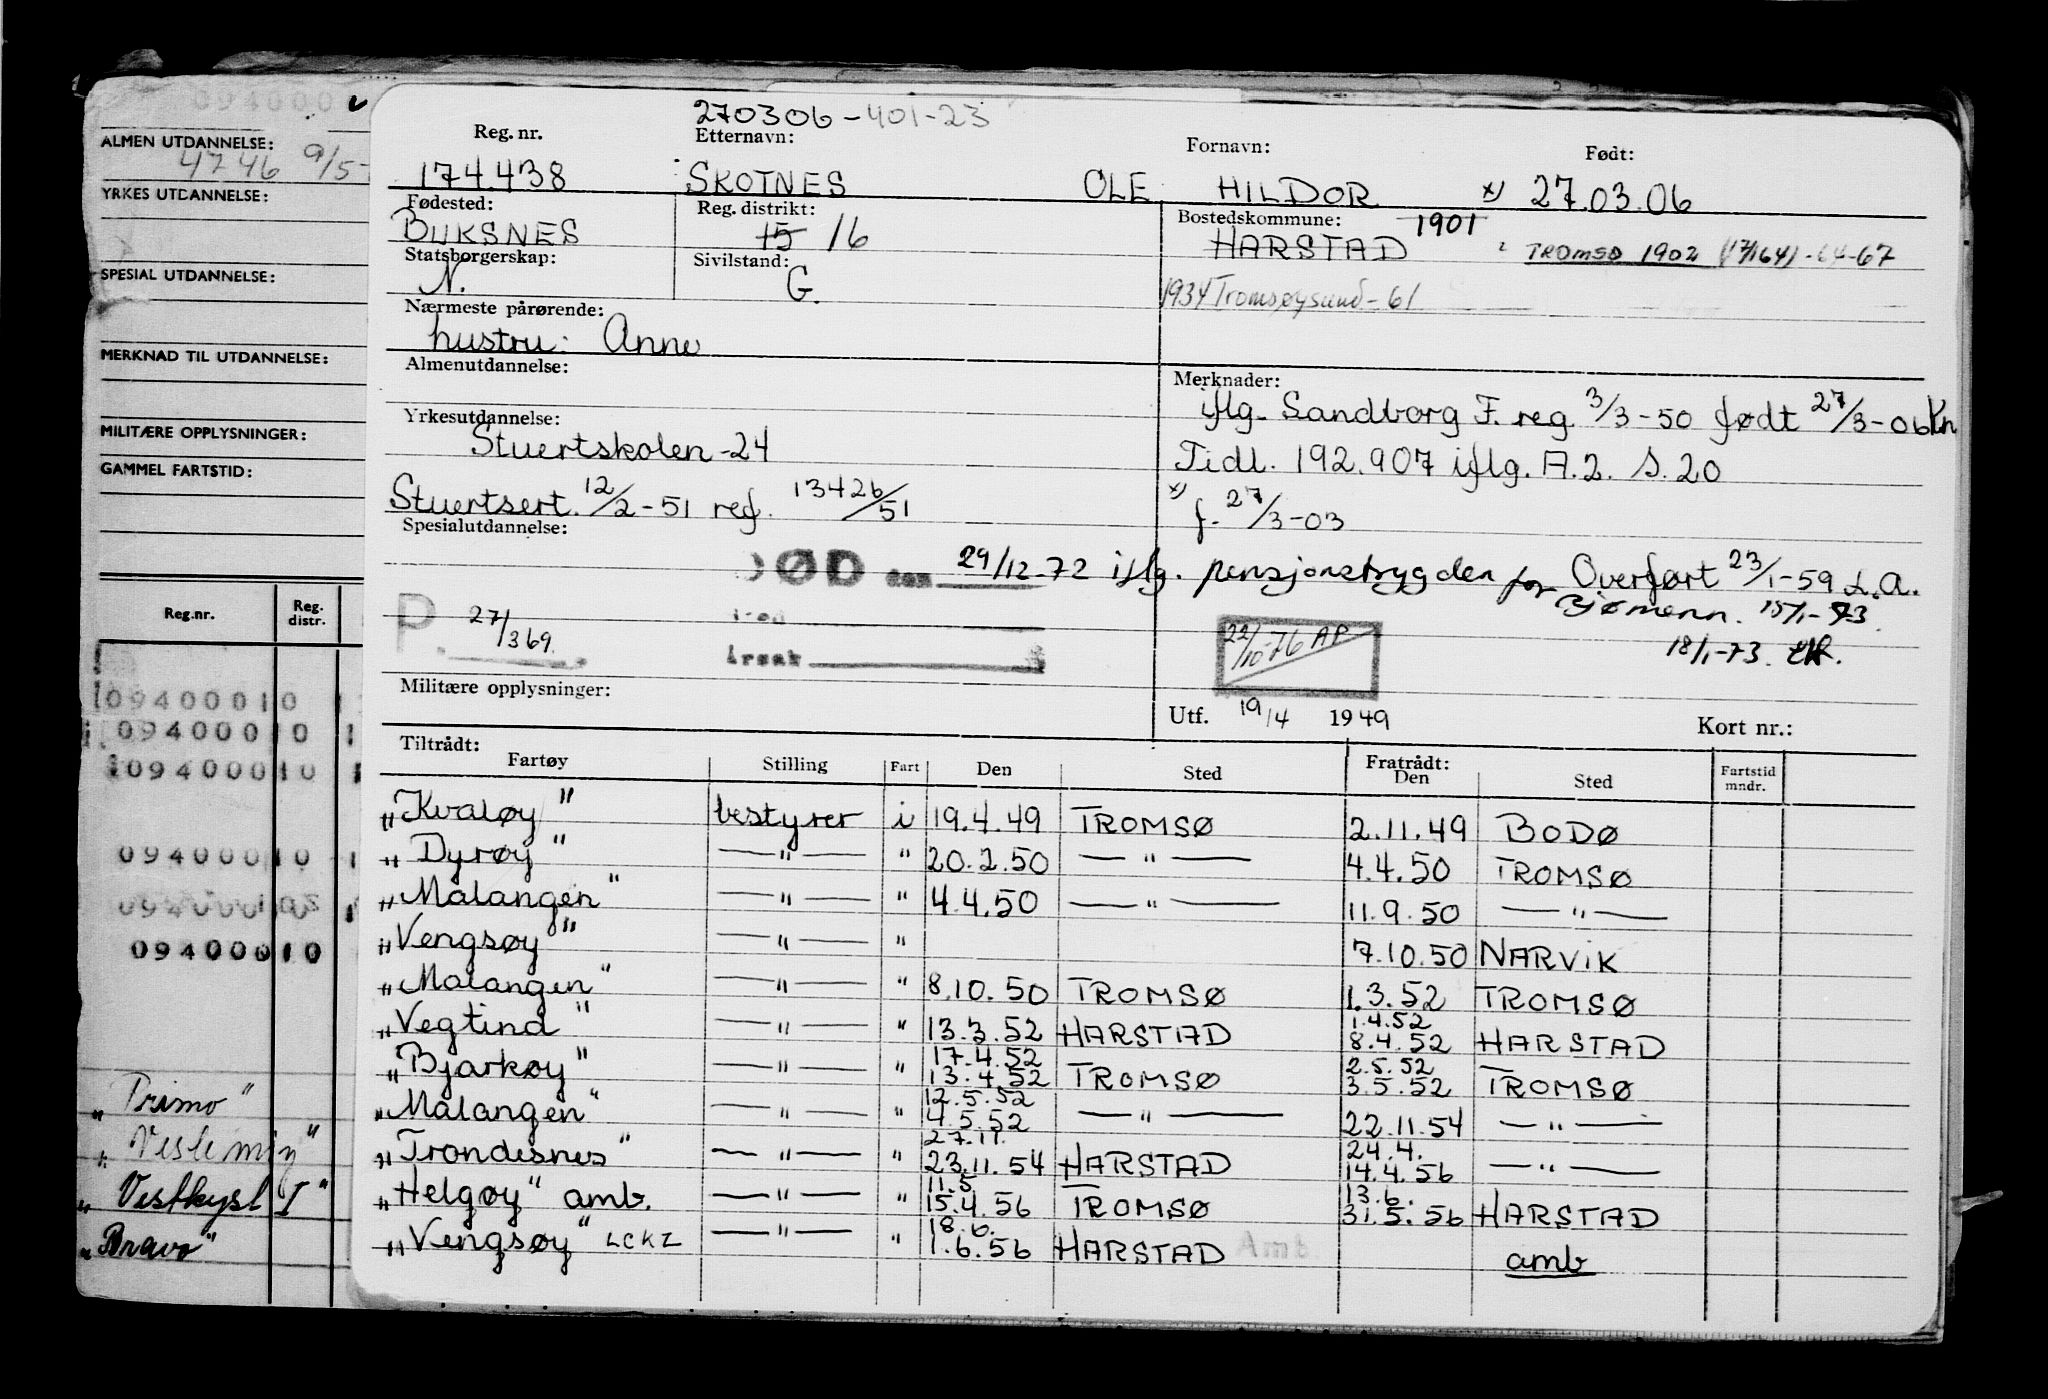 0940001
ALMEN UTDANNELSE:
4746 9/5-
YRKES UTDANNELSE:
SPESIAL UTDANNELSE:
MERKNAD TIL UTDANNELSE:
MILITÆRE OPPLYSNINGER:
GAMMEL FARTSTID:
Reg.nr. Reg. distr.
09400010
09400010
09400010
09400010
09400010
"Primo"
"Veslemøy"
"Vestkyst I"
"Bravo"
270306-401-23
Reg. nr. Etternavn: Fornavn: Født:
174.438 SKOTNES OLE HILDOR x) 27.03.06
Fødested: Reg. distrikt: Bostedskommune: 1901
BUKSNES 15 16 HARSTAD TROMSØ 1902 (17/164) -64-67
Statsborgerskap: Sivilstand:
N. G. 1934 Tromsøysund-61
Nærmeste pårørende:
hustru: Anne
Almenutdannelse: Merknader:
iflg. Sandborg F. reg. 3/3-50 født 27/3-06 Kn
Yrkesutdannelse:
Stuertskolen-24 Tidl. 192.907 iflg. A.2. S.20
Stuertsert. 12/2-51 ref. 13426/51 x) f. 27/3-03
Spesialutdannelse:
DØD den 29/12-72 iflg. pensjonstrygden for Overført 23/1-59 L.A.
sjømenn. 15/1-73.
P. 27/3 69. sted
årsak
22/10-76 AP 18/1-73.
Militære opplysninger:
Utf. 19/4 1949 Kort nr.:
Tiltrådt: Fratrådt:
Fartøy Stilling Fart Den Sted Den Sted Fartstid mndr.
"Kvaløy" bestyrer i 19.4.49 TROMSØ 2.11.49 BODØ
"Dyrøy" —"— " 20.2.50 —"— 4.4.50 TROMSØ
"Malangen" —"— " 4.4.50 —"— 11.9.50 —"—
"Vengsøy" —"— " 7.10.50 NARVIK
"Malangen" —"— " 8.10.50 TROMSØ 1.3.52 TROMSØ
1.4.52
"Vegtind" —"— " 13.3.52 HARSTAD 8.4.52 HARSTAD
17.4.52 2.5.52
"Bjarkøy" —"— " 13.4.52 TROMSØ 3.5.52 TROMSØ
12.5.52
"Malangen" —"— " 4.5.52 —"— 22.11.54 —"—
27.11. 24.4.
"Trondesnes" —"— " 23.11.54 HARSTAD 14.4.56 —"—
11.5 13.6.
"Helgøy" amb. —"— " 15.4.56 TROMSØ 31.5.56 HARSTAD
18.6.
"Vengsøy" LCKZ —"— " 1.6.56 HARSTAD Amb. amb